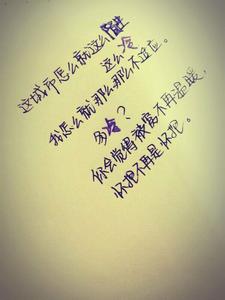 这城市怎么就这么陌生
这么冷
我怎么就那么那么不适应。
多冷？
你会觉得被窝不再温暖，
怀抱不再是怀抱。